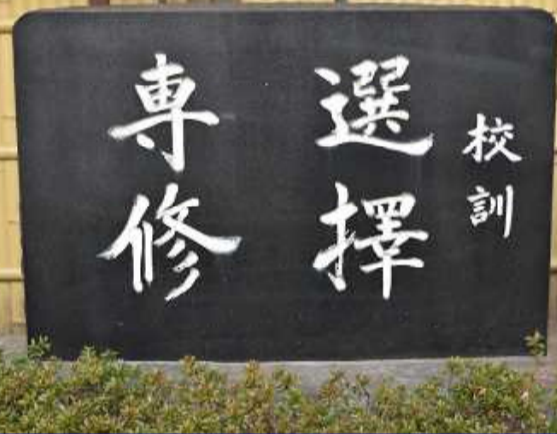 校訓
選擇
専修